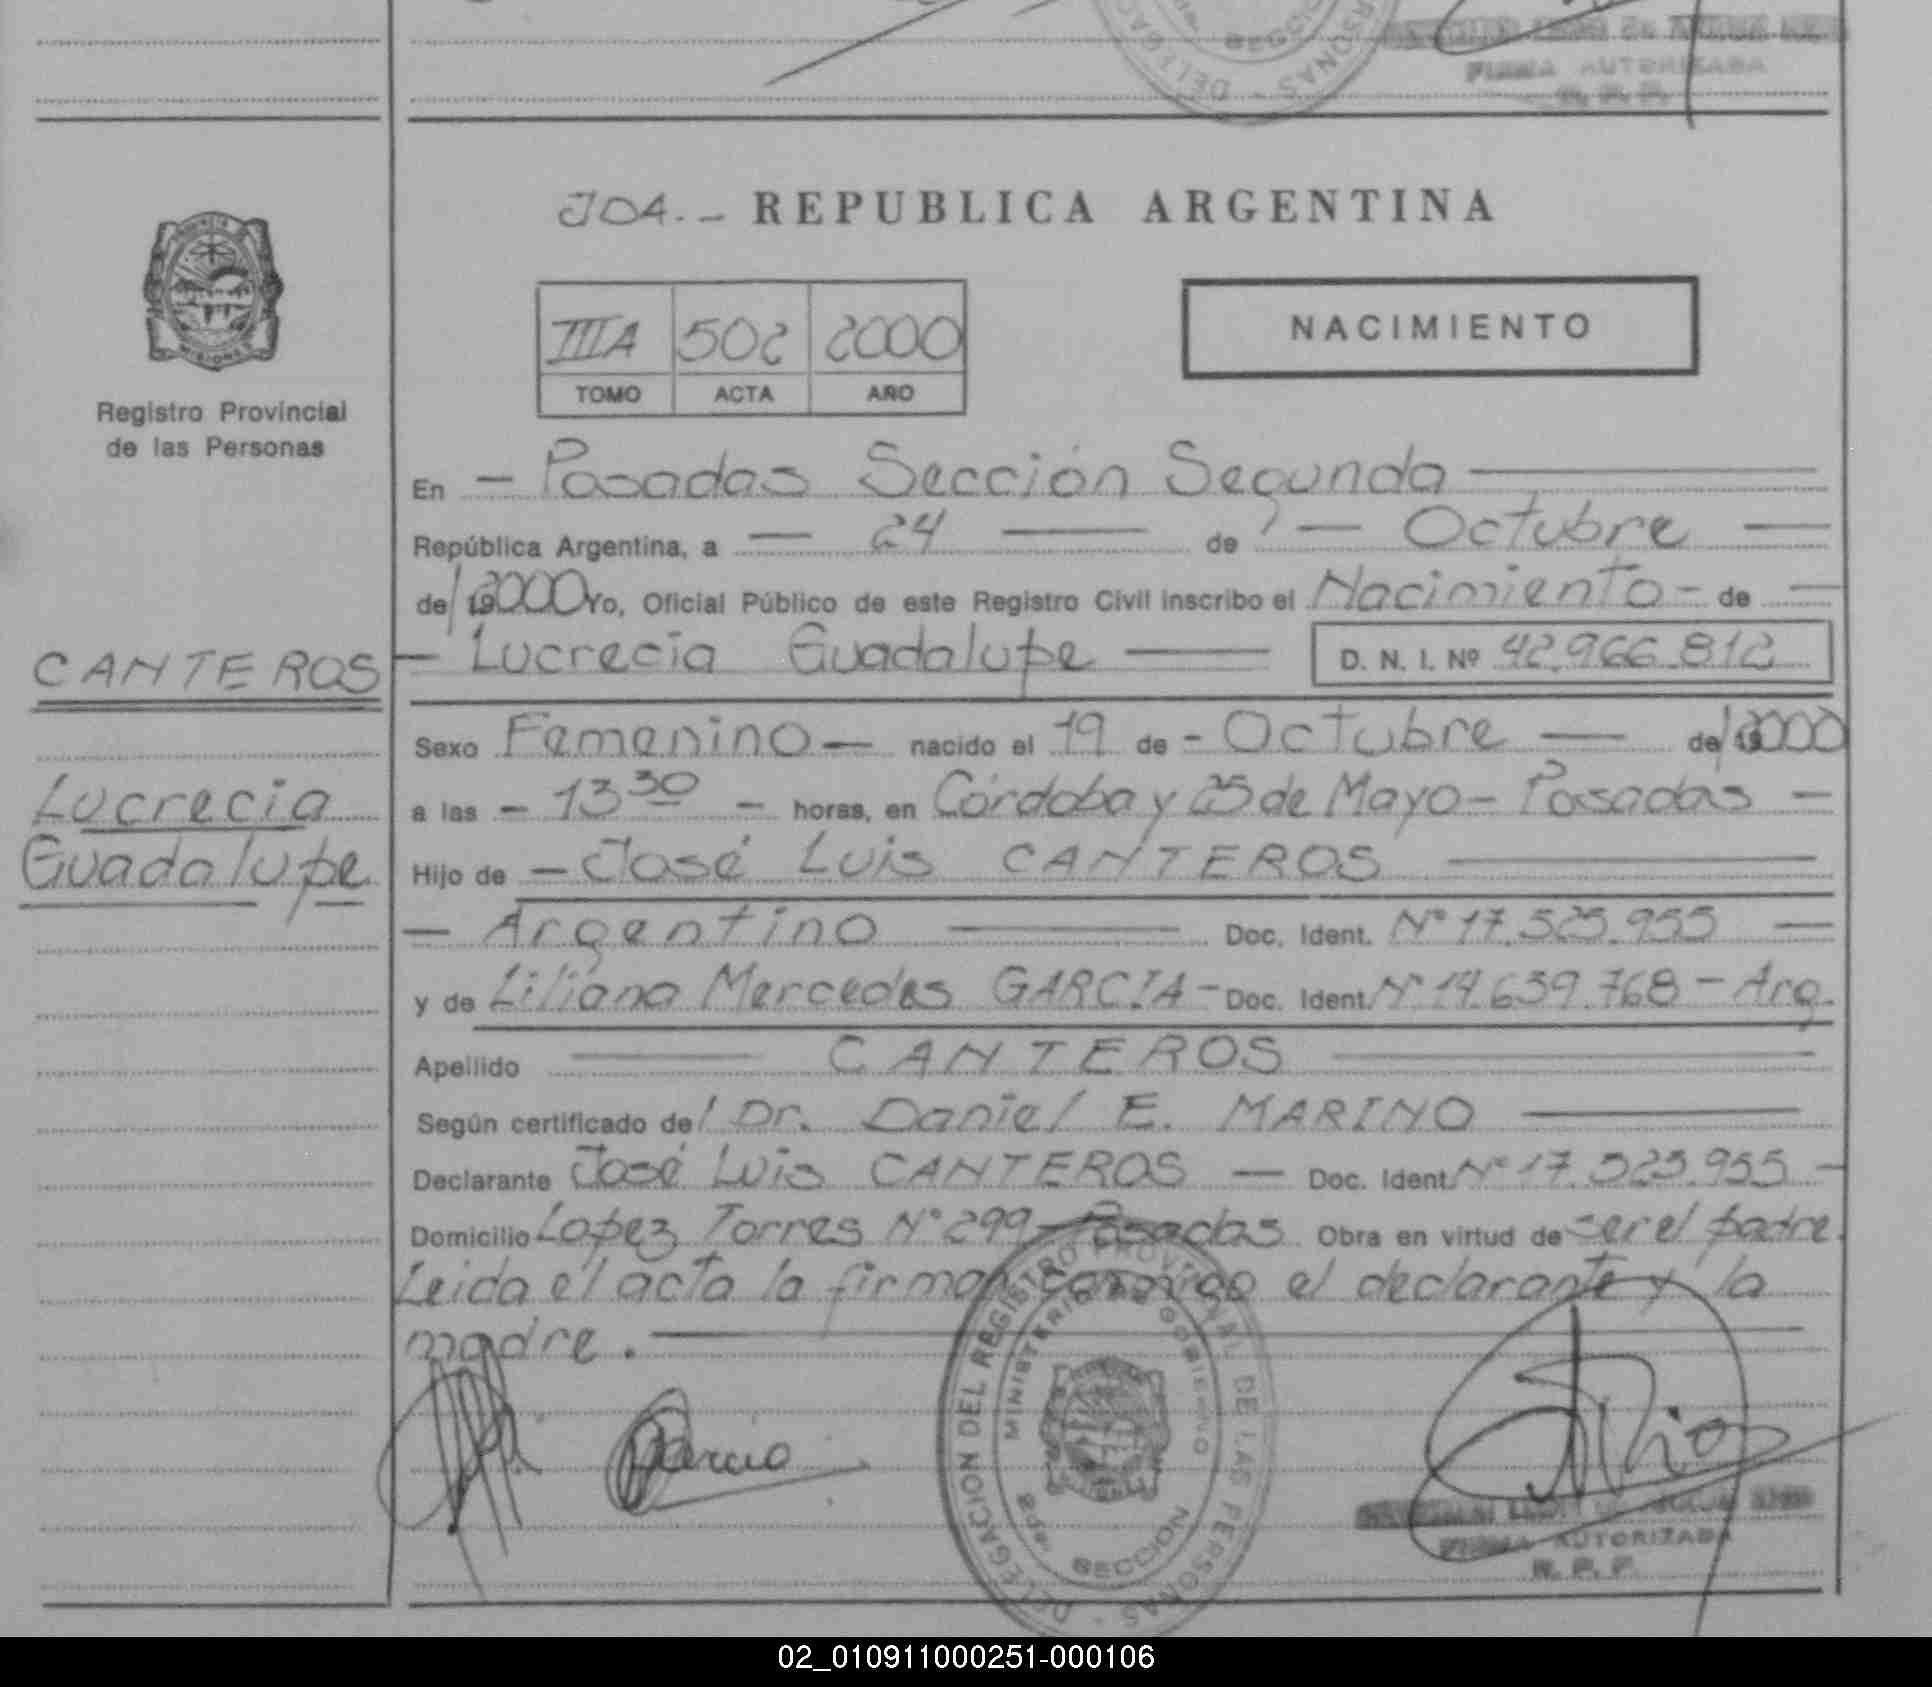 DELEGAC
SECCI
RSONAS
FIRMA AUTORIZADA
R. P. P.
204.- REPUBLICA ARGENTINA
IIIA 502 2000
TOMO ACTA AÑO
NACIMIENTO
PROVINCIA
MISIONES
Registro Provincial
de las Personas
En - Posadas Sección Segunda
República Argentina, a - 24 - de - Octubre -
de/ 192000 Yo, Oficial Público de este Registro Civil inscribo el Nacimiento - de -
CANTEROS
- Lucrecia Guadalupe - D. N. I. Nº 42.966.812
Sexo Femenino - nacido el 19 de - Octubre - de/ 192000
Lucrecia
Guadalupe
a las - 13 30 - horas, en Córdoba y 25 de Mayo - Posadas -
Hijo de - José Luis CANTEROS
- Argentino - Doc. Ident. Nº 17.523.955 -
y de Liliana Mercedes GARCIA - Doc. Ident. Nº 14.639.768 - Arg.
Apellido - CANTEROS -
Según certificado de/ Dr. Daniel E. MARINO -
Declarante José Luis CANTEROS - Doc. Ident. Nº 17.523.955 -
Domicilio Lopez Torres Nº 299 - Posadas Obra en virtud de ser el padre.
Leida el acta la firman conmigo el declarante y la
madre.
DELEGACION DEL REGISTRO PROVINCIAL DE LAS PERSONAS -
MINISTERIO DE GOBIERNO
SECCION
FIRMA AUTORIZADA
R. P. P.
02_010911000251-000106